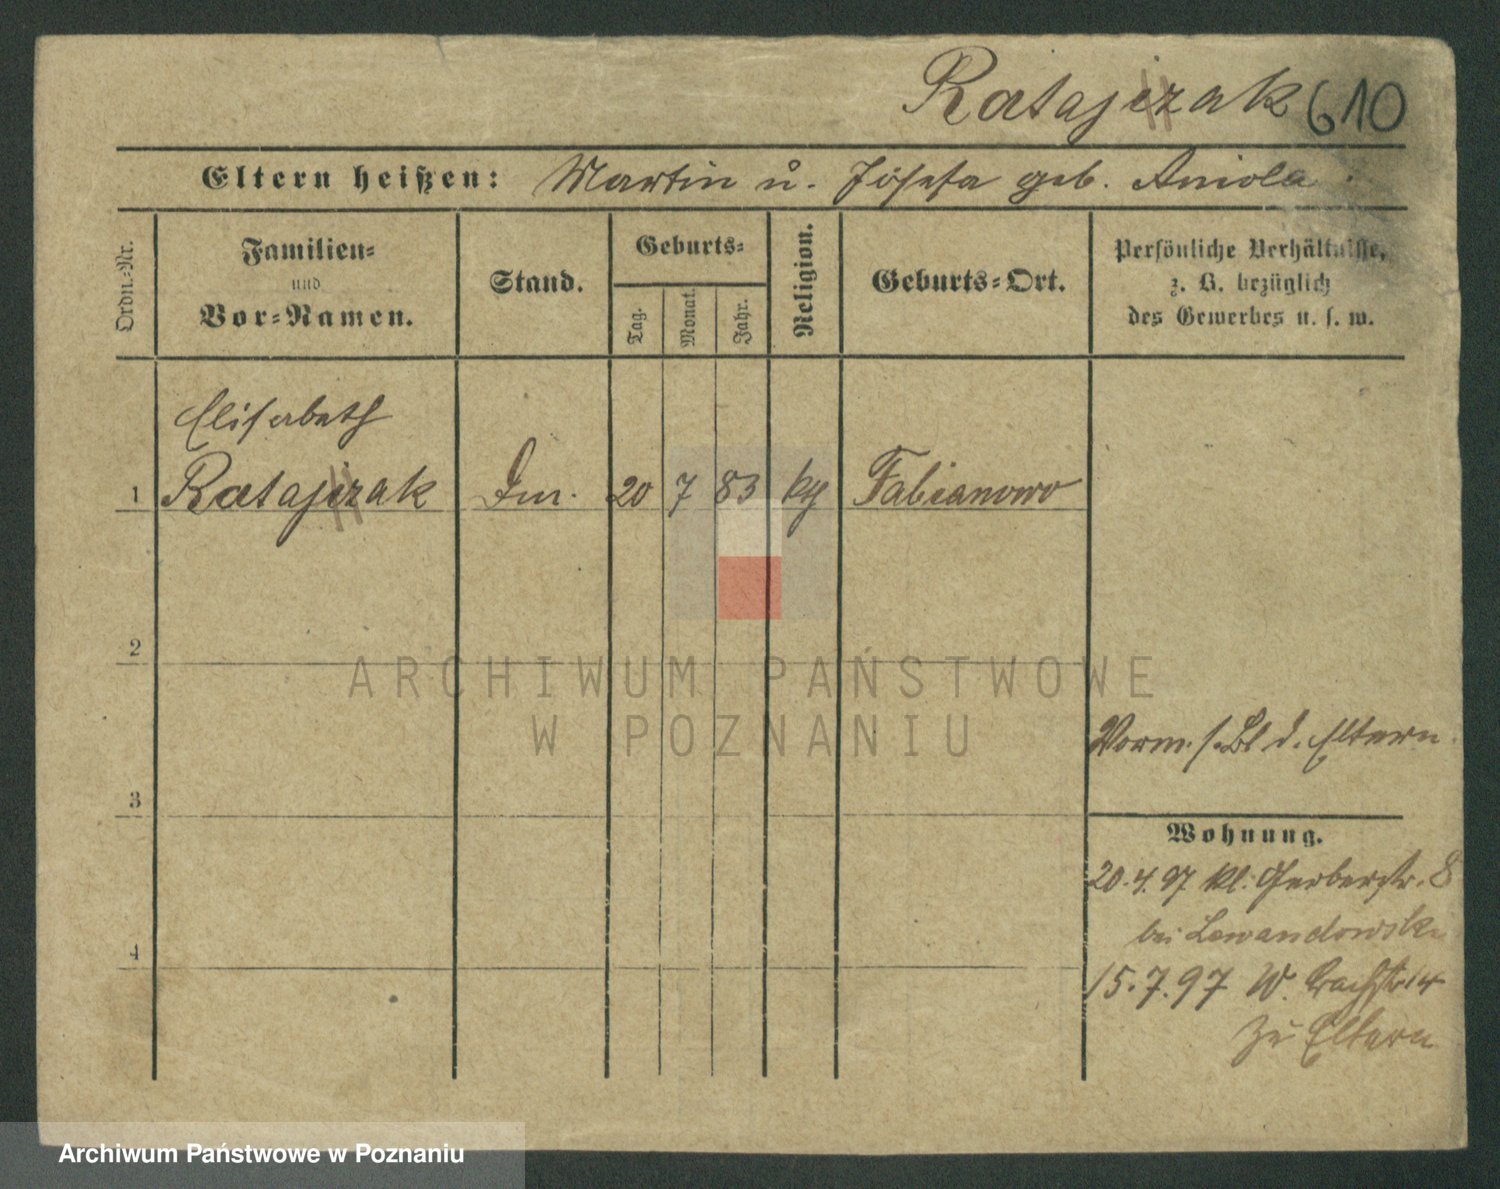 Ratajczak 610
Eltern heißen: Martin u. Josefa geb. Aniola.
Ordn.-Nr.
Familien-
und
Vor-Namen.
Stand.
Geburts-
Tag.
Monat.
Jahr.
Religion.
Geburts-Ort.
Persönliche Verhältnisse,
z. B. bezüglich
des Gewerbes u. s. w.
Elisabeth
1 Ratajczak 20 7 83 Fabianowo
2
ARCHIWUM PAŃSTWOWE
W POZNANIU
Vorm. s. Bl d. Eltern
3
Wohnung.
20.4.97 kl. Gerberstr. 8
bei Lewandowski
4
15.7.97 W. 14
zu Eltern
Archiwum Państwowe w Poznaniu